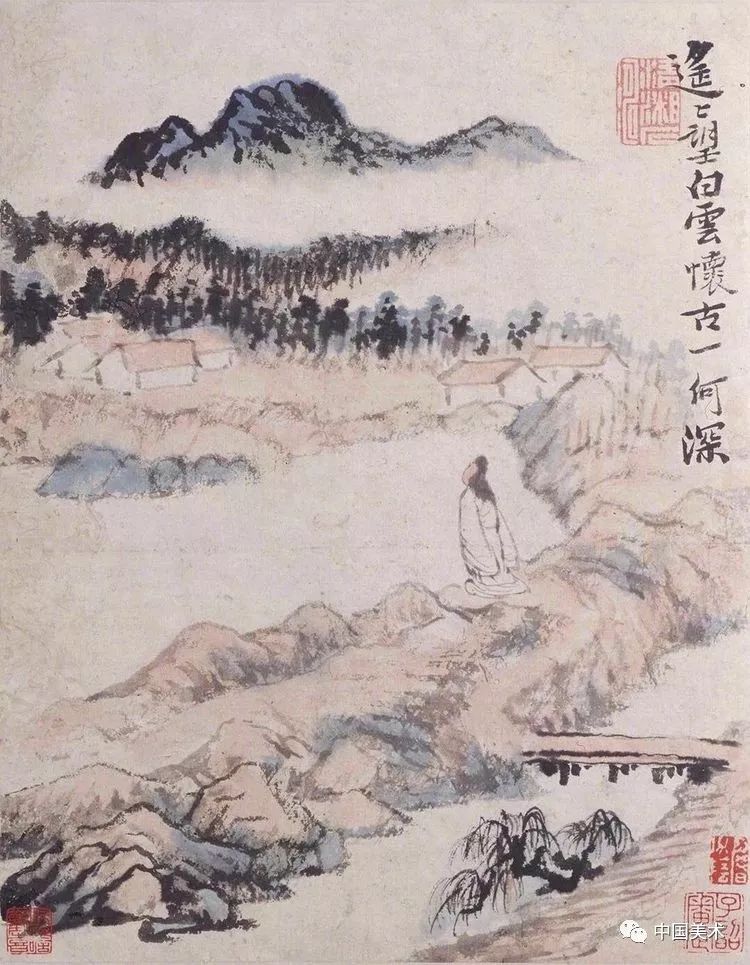 遙〻望白雲懷古一何深
中国美术